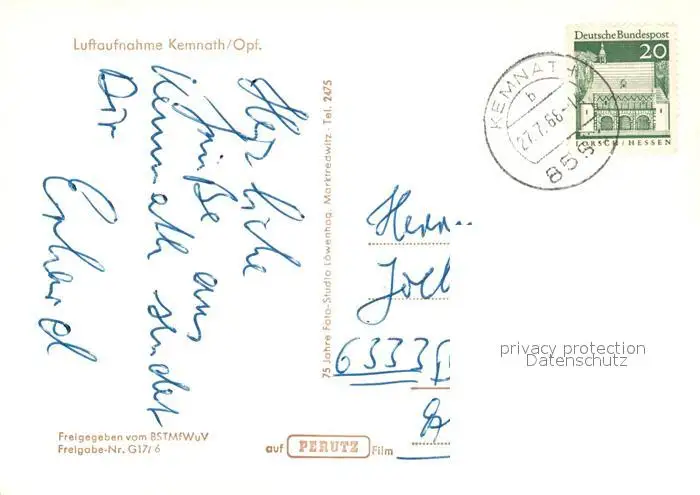 Luftaufnahme Kemnath/Opf.
Herzliche
Grüße aus
Kemnath sendet
Dir
Erhard
Freigegeben vom BSTMfWuV
Freigabe-Nr. G17/6
75 Jahre Foto-Studio Löwenhag, Marktredwitz · Tel. 2475
auf PERUTZ Film
Deutsche Bundespost
20
LORSCH/HESSEN
KEMNATH
b
27.7.66-1
Herrn
6333
privacy protection
Datenschutz